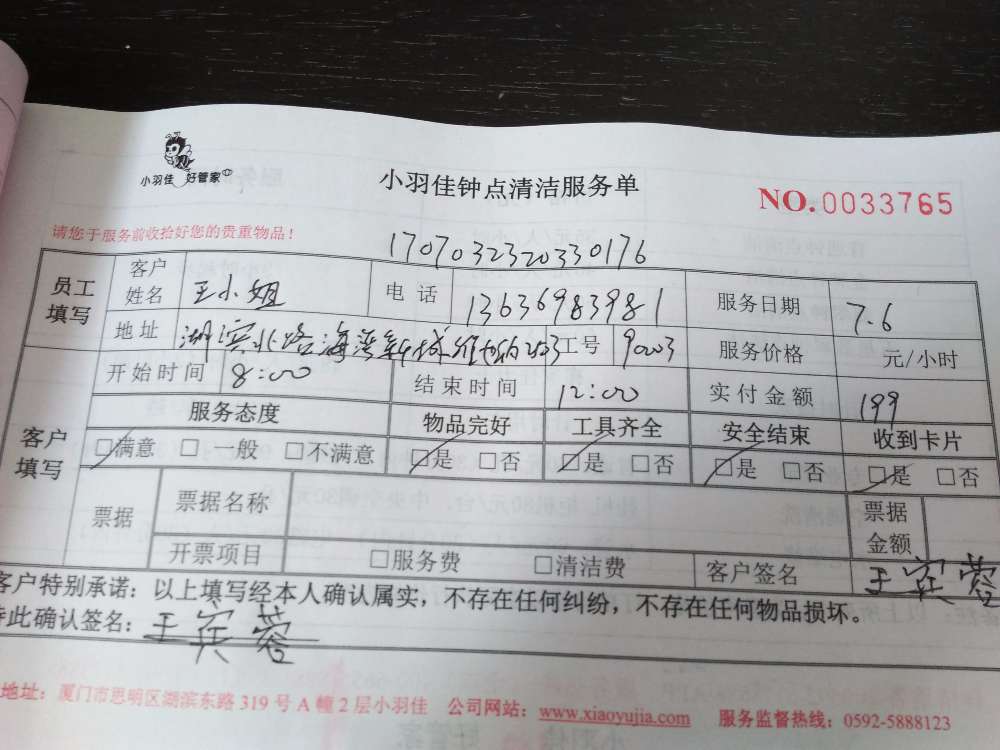 小羽佳 好管家
小羽佳钟点清洁服务单
NO.0033765
请您于服务前收拾好您的贵重物品!
1707032320330176
员工填写 客户姓名 王小姐 电话 13636983981 服务日期 7.6
地址 湖滨北路海湾新城 工号 9003 服务价格 元/小时
开始时间 8:00 结束时间 12:00 实付金额 199
客户填写 服务态度 物品完好 工具齐全 安全结束 收到卡片
□满意 □一般 □不满意 □是 □否 □是 □否 □是 □否 □是 □否
票据 票据名称 票据金额
开票项目 □服务费 □清洁费 客户签名 王宾蓉
客户特别承诺：以上填写经本人确认属实，不存在任何纠纷，不存在任何物品损坏。
特此确认签名：王宾蓉
地址：厦门市思明区湖滨东路319号A幢2层小羽佳 公司网站：www.xiaoyujia.com 服务监督热线：0592-5888123